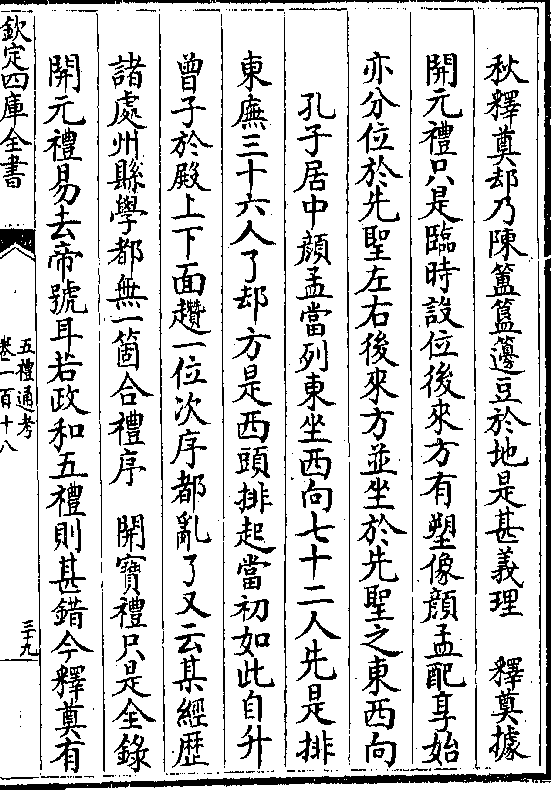 秋釋奠却乃陳簠簋籩豆於地是甚義理　釋奠據
開元禮只是臨時設位後來方有塑像顔孟配享始
亦分位於先聖左右後來方並坐於先聖之東西向
孔子居中顔孟當列東坐西向七十二人先是排
東廡三十六人了却方是西頭排起當初如此自升
曾子於殿上下面趲一位次序都亂了又云某經歴
諸處州縣學都無一箇合禮序　開寳禮只是全錄
開元禮易去帝號耳若政和五禮則甚錯今釋奠有
欽定四庫全書
五禮通考
卷一百十八
三十九